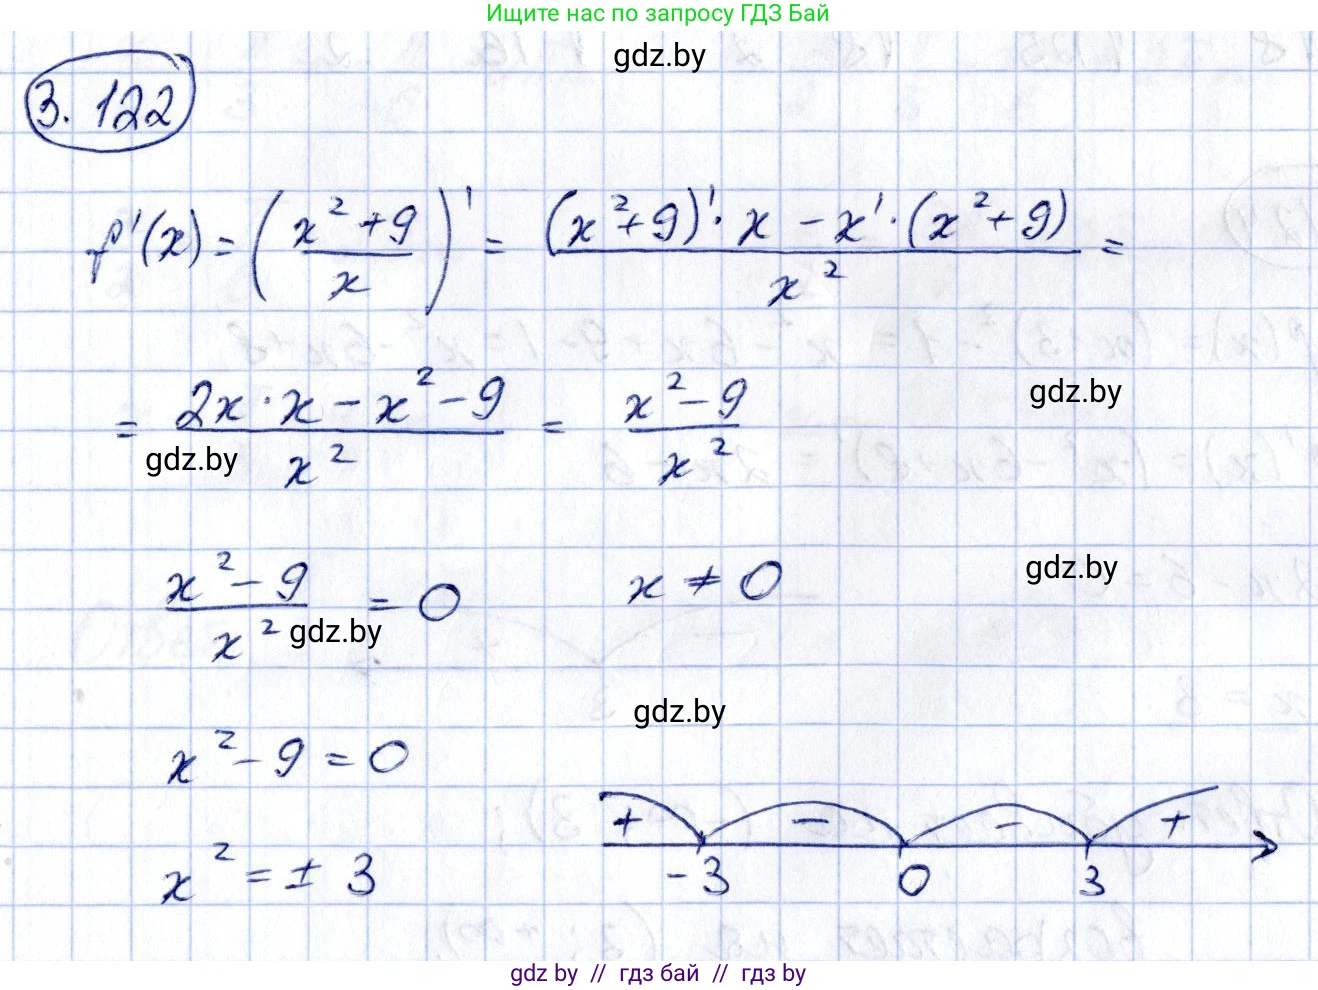 Ищите нас по запросу ГДЗ Бай
gdz.by
3. 122
f'(x) = (x² + 9 / x)' = (x² + 9)' · x − x' · (x² + 9) / x² =
= 2x · x − x² − 9 / x² = x² − 9 / x²
gdz.by
gdz.by
x² − 9 / x² = 0 x ≠ 0
gdz.by
gdz.by
gdz.by
x² − 9 = 0
+ − − +
x² = ± 3
-3 0 3
gdz by // гдз бай // гдз by